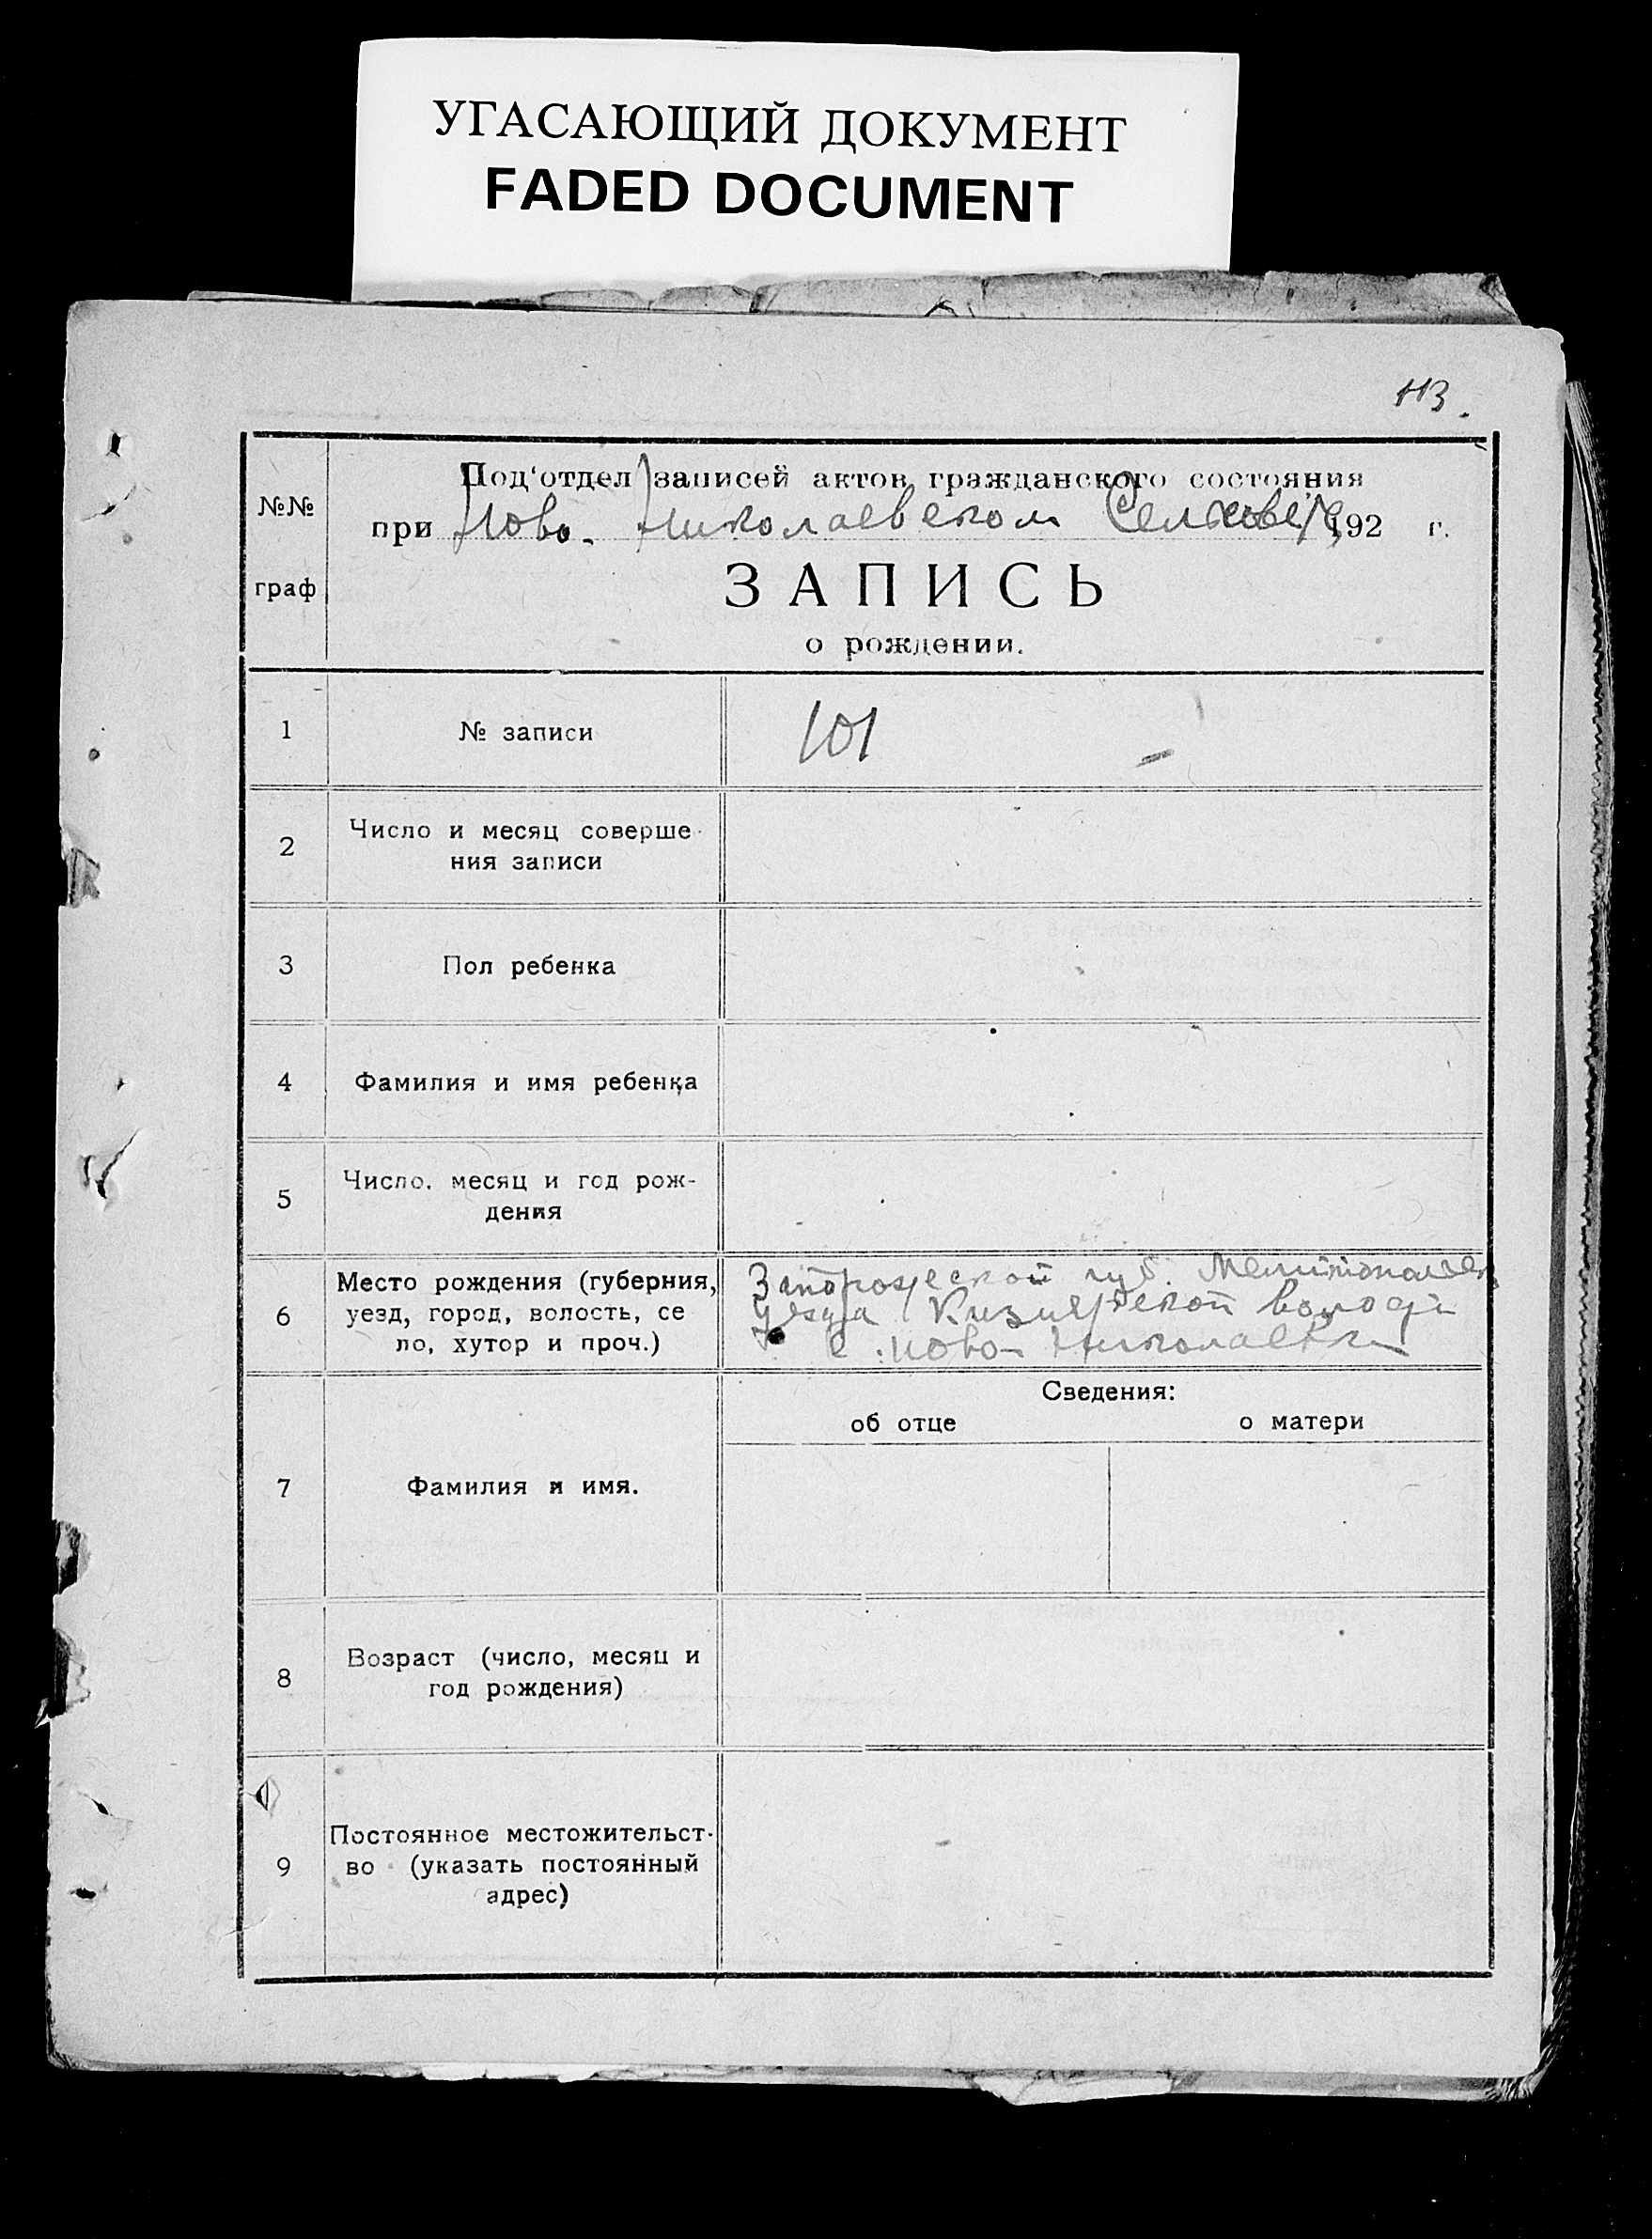 УГАСАЮЩИЙ ДОКУМЕНТ
FADED DOCUMENT
113.
№№ граф
Под'отдел записей актов гражданского состояния
при Ново-Николаевском Сельсовете 192 г.
ЗАПИСЬ
о рождении.
1 № записи 101
2 Число и месяц соверше-
ния записи
3 Пол ребенка
4 Фамилия и имя ребенка
5 Число, месяц и год рож-
дения
6 Место рождения (губерния,
уезд, город, волость, се
ло, хутор и проч.)
Запорожской губ. Мелитопольск
уезда Кизиярской волости
с. Ново-Николаевки
Сведения:
об отце о матери
7 Фамилия и имя.
8 Возраст (число, месяц и
год рождения)
9 Постоянное местожительст-
во (указать постоянный
адрес)